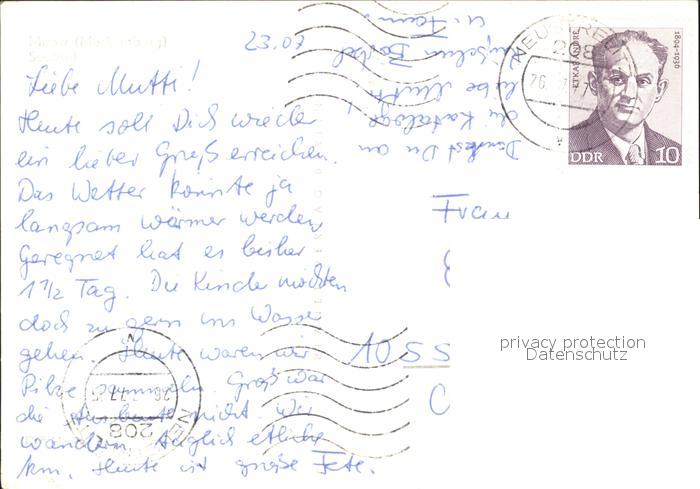 23.07
Liebe Mutti!
Heute soll Dich wieder
ein lieber Gruß erreichen.
Das Wetter könnte ja
langsam wärmer werden,
Geregnet hat es bisher
1 1/2 Tag. Die Kinder möchten
doch zu gern ins Wasser
gehen. Heute waren wir
Pilze sammeln. Groß war
die Ausbeute nicht. Wir
wandern täglich etliche
km. Heute ist große Fete.
Denkst Du an
die Kataloge!
Liebe Mutti
u. Fam.
NEUSTRELITZ
208
ETKAR ANDRÉ
1894-1936
DDR
10
Frau
10 55
privacy protection
Datenschutz
208